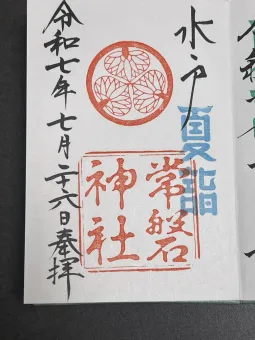 水戸
夏詣
常磐
神社
令和七年七月二十八日奉拝